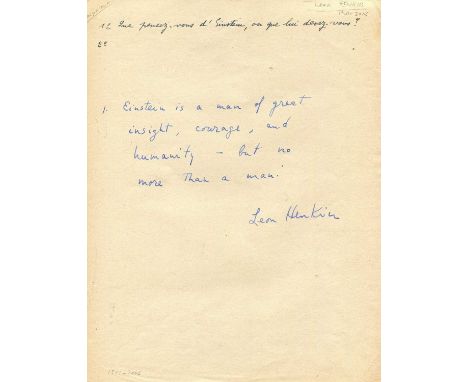 LEON HENKIN
1º Que pensez-vous d'Einstein, ou que lui devez-vous?
2º
1. Einstein is a man of great
insight, courage, and
humanity — but no
more than a man!
Leon Henkin